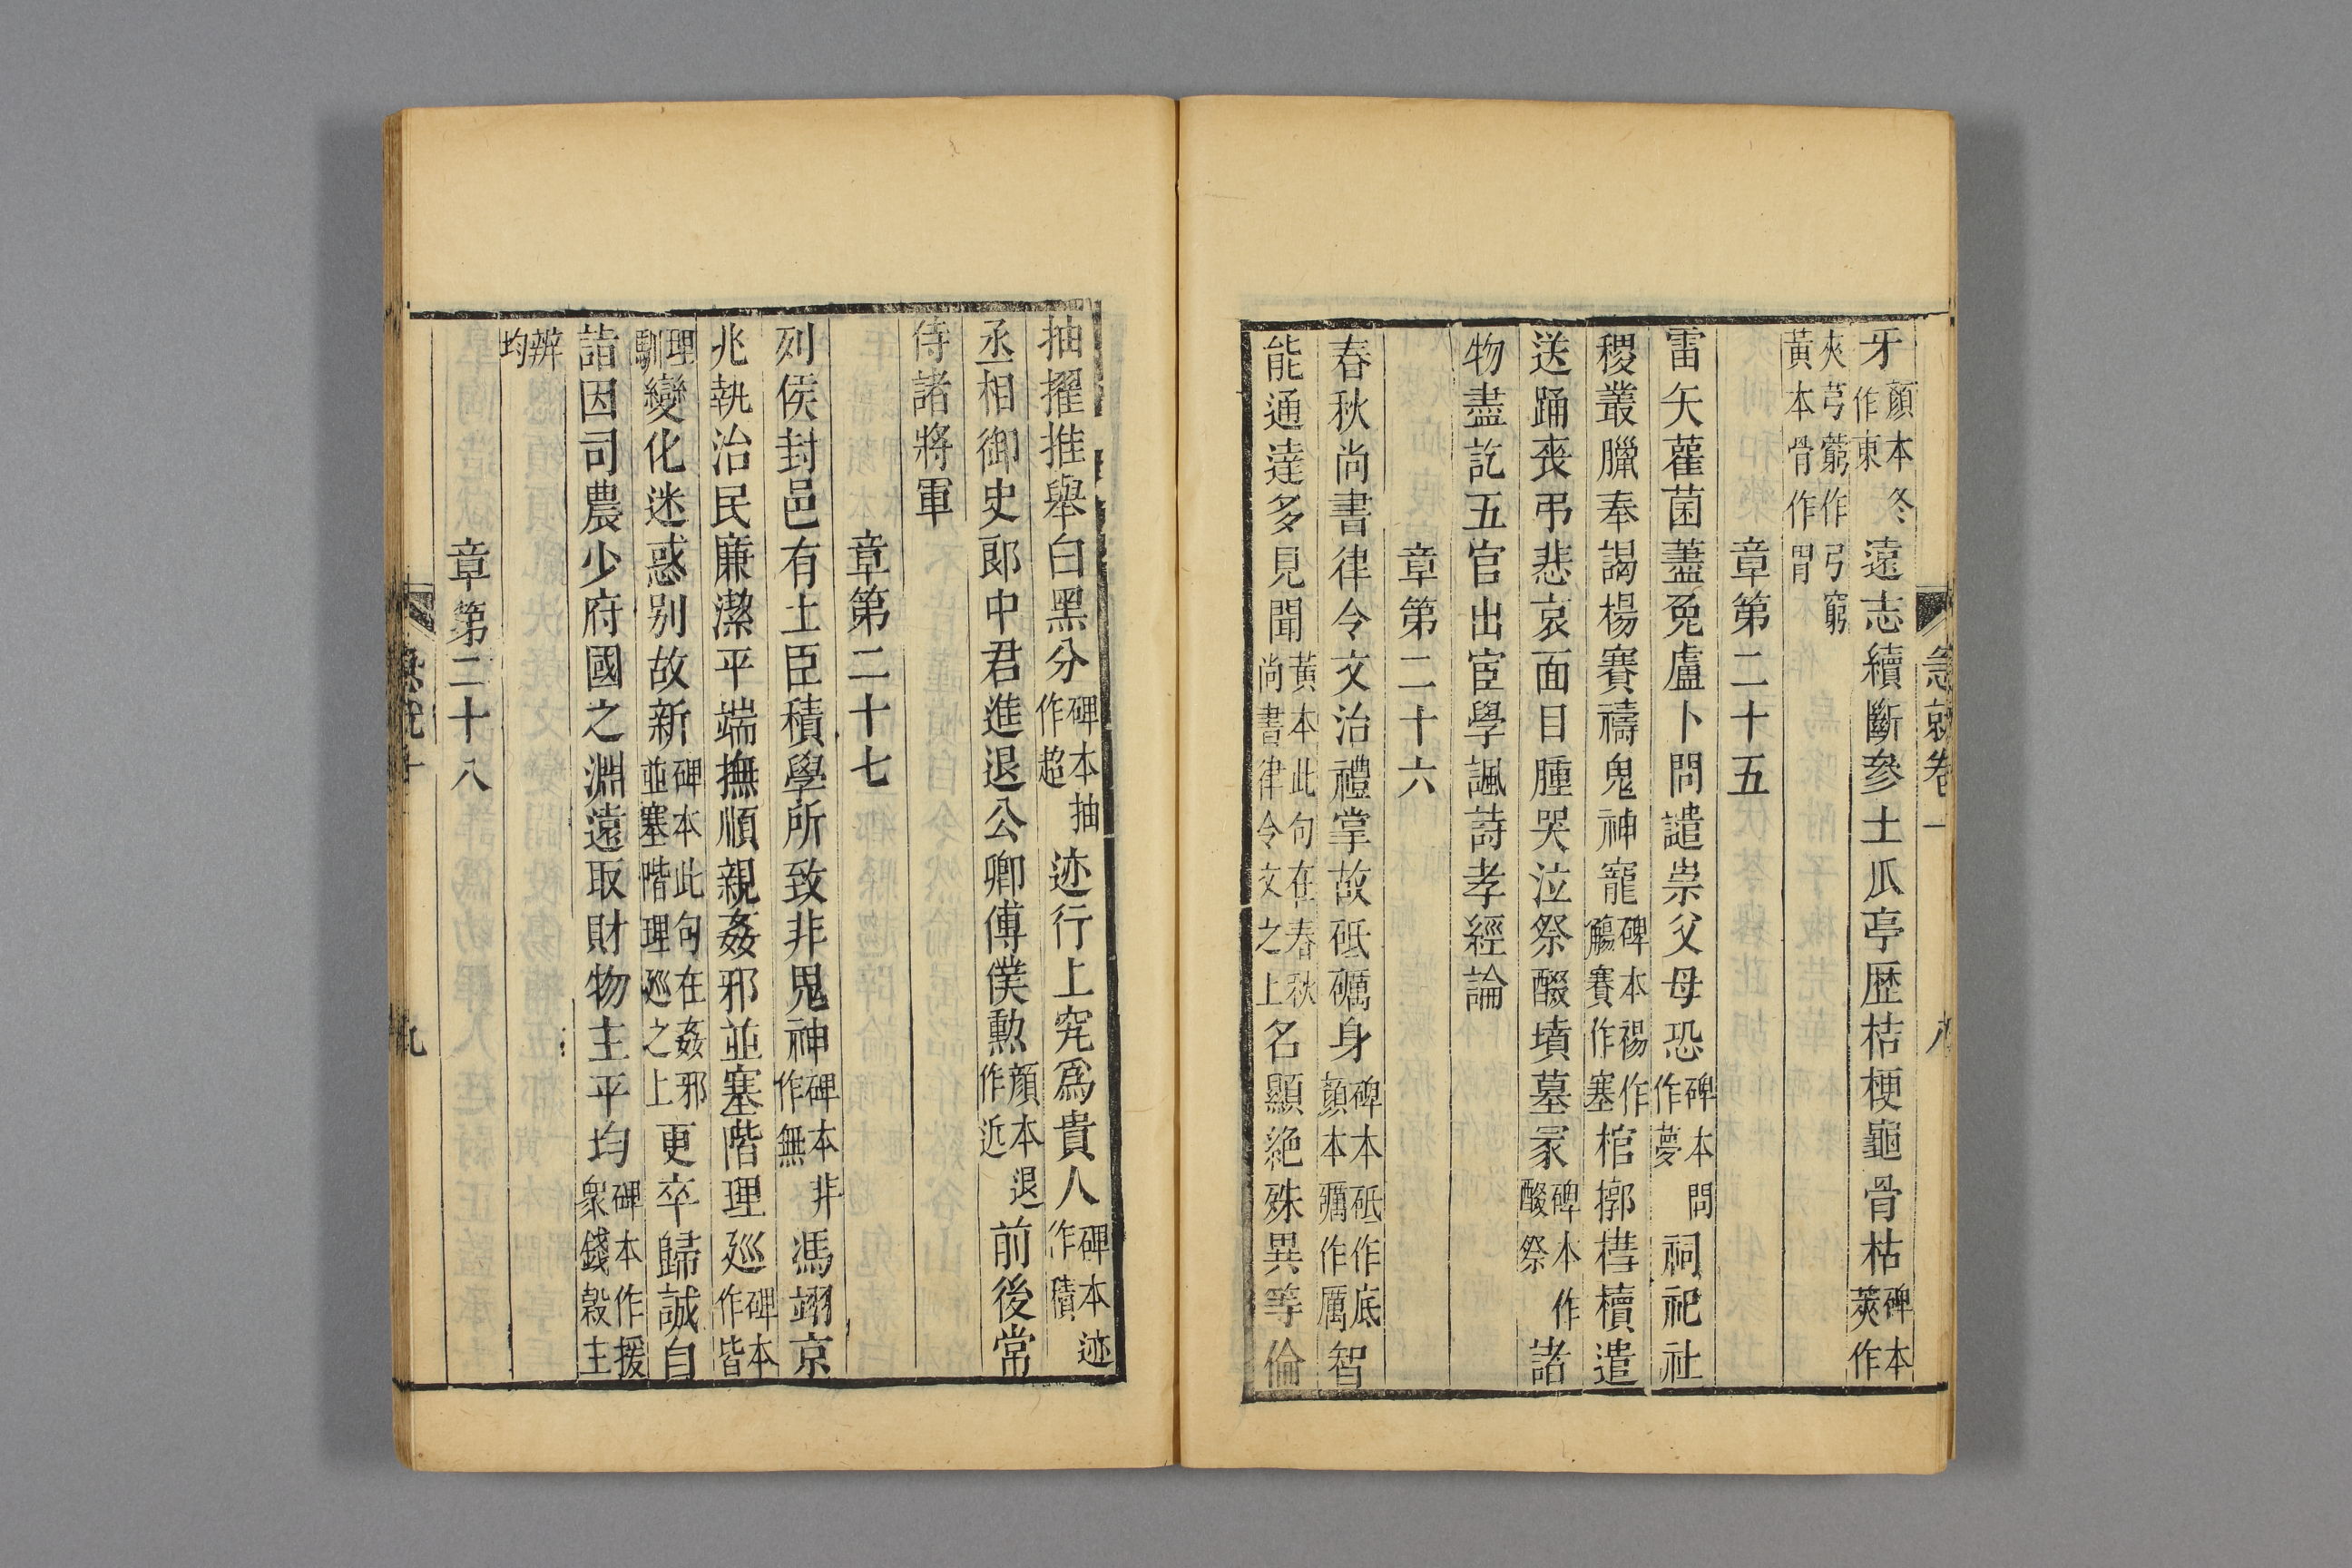 急就卷一 八
牙顏本冬作東遠志續斷參土瓜亭歴桔梗龜骨枯碑本莢作
夾芎藭作弓窮黃本骨作胃
章第二十五
雷矢雚菌藎兔盧卜問譴祟父母恐碑本問作夢祠祀社
稷叢臘奉謁楊賽禱鬼神寵碑本禓作觴賽作塞棺槨槥櫝遣
送踊喪弔悲哀面目腫哭泣祭醊墳墓冢碑本作醊祭諸
物盡訖五官出宦學諷詩孝經論
章第二十六
春秋尚書律令文治禮掌故砥礪身碑本砥作底顏本礪作厲智
能通達多見聞黃本此句在春秋尚書律令文之上名顯絶殊異等倫
抽擢推舉白黑分碑本抽作超迹行上究爲貴人碑本迹作積
丞相御史郎中君進退公卿傅僕勲顏本退作近前後常
侍諸將軍
章第二十七
列侯封邑有土臣積學所致非鬼神碑本非作無馮翊京
兆執治民廉潔平端撫順親姦邪並塞階理廵碑本作皆
理馴變化迷惑别故新碑本此句在姦邪並塞階理廵之上更卒歸誠自
詣因司農少府國之淵遠取財物主平均碑本作援衆錢穀主
辨均
章第二十八
九